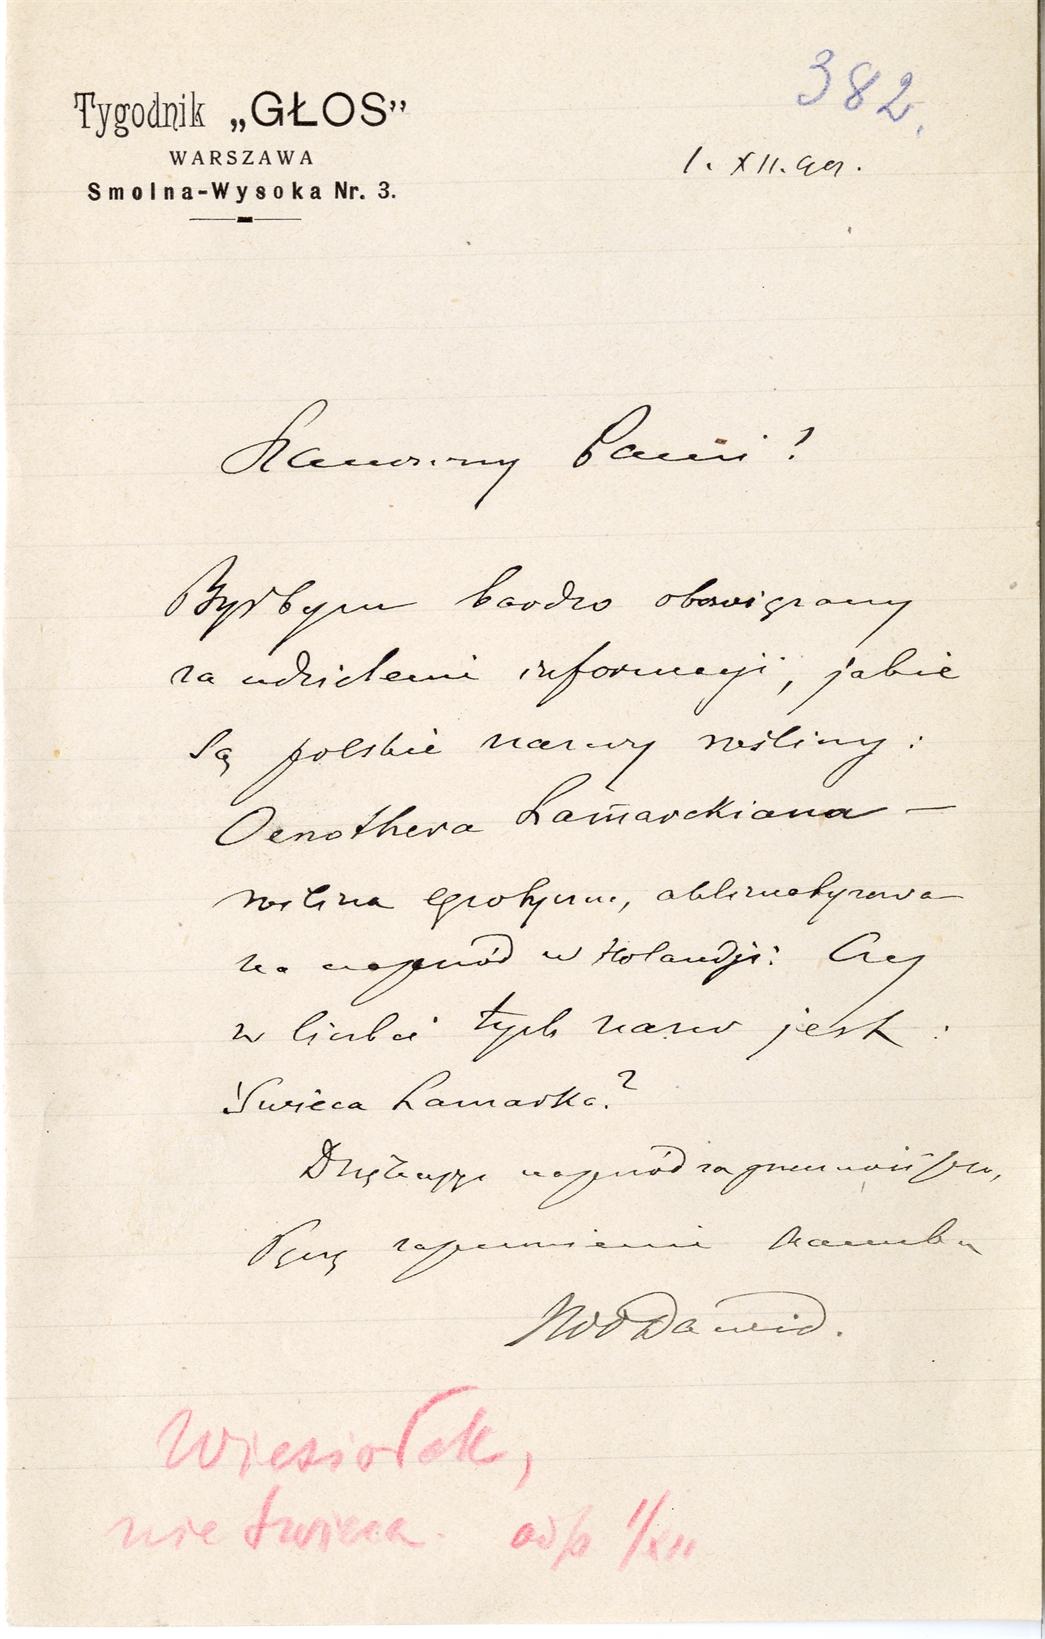 382.
Tygodnik „GŁOS”
WARSZAWA
Smolna-Wysoka Nr. 3.
1. XII. 901.
Szanowny Panie!
Byłbym bardzo obowiązany
za udzielenie informacji, jakie
są polskie nazwy rośliny:
Oenothera Lamarckiana –
roślina egzotyczna, aklimatyzowa
na naprzód w Holandji: Czy
w liczbie tych nazw jest:
Świeca Lamarka?
Dziękując naprzód za
Łączę zapewnienie szacunku
Dawid.
Wiesiołek,
nie świeca. odp 1/XII